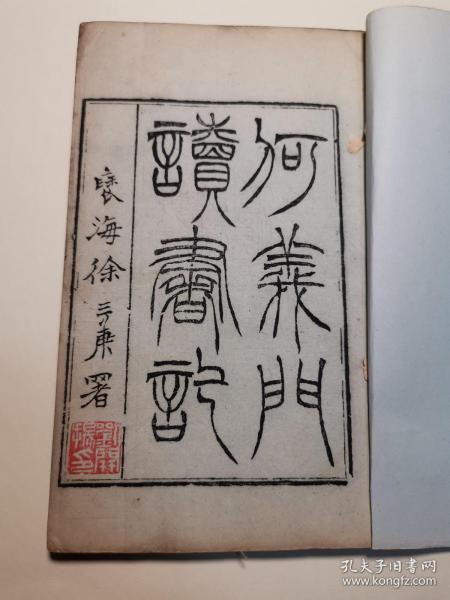 何義門
讀書記
褎海徐三庚署
孔夫子旧书网
www.kongfz.com